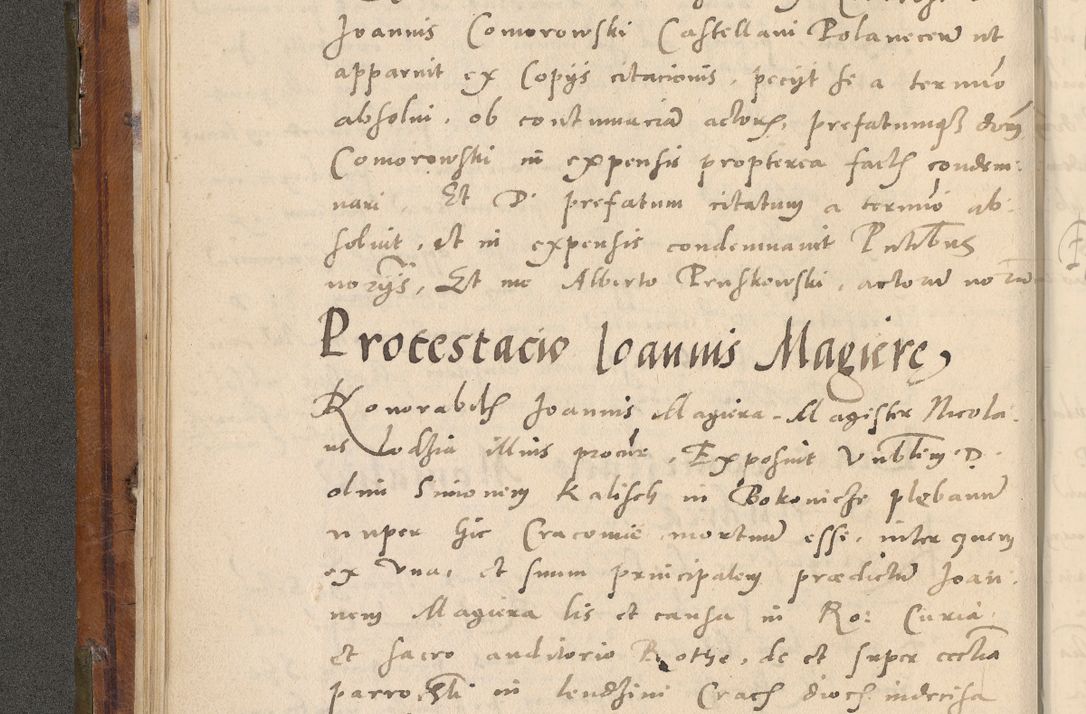 Joannis Comorowski Castellani Polanecen ut
apparuit ex Copijs citacionis, pecijt se a termio
absolui, ob contumaciā actorꝭ, prefatumqꝫ dnm̄
Comorowski in expensis propterea factꝭ condem:
nari, Et D. prefatum citatum a termio ab:
soluit, et in expensis condemnauit Pntibus
norijs, Et me Alberto Pruskowski, actorum no
Protestacio Joannis Magiere,
Honorabilꝭ Joannis Magiera Magister Nicola:
us Lodzia illius procur, Exposuit Vnblem D.
olim Simonem Kalisch in Bokowicze plebanum
nuper hic Cracouie mortuum esse, inter quem
ex vna, et suum principalem prædictum Joan:
nem Magiera lis et causa in Ro: Curia
et sacro auditorio Rothe, de et super ecclia
parrochli in Lendzini Cracꝭ diocꝭ indecisa